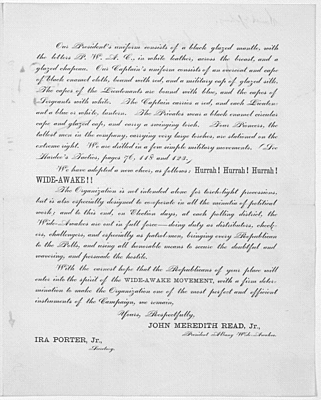 Our President's uniform consists of a black glazed mantle, with
the letters P. W. A. C., in white leather, across the breast, and a
glazed chapeau. Our Captain's uniform consists of an overcoat and cape
of black enamel cloth, bound with red, and a military cap of glazed silk.
The capes of the Lieutenants are bound with blue, and the capes of
Sergeants with white. The Captain carries a red, and each Lieuten-
ant a blue or white, lantern. The Privates wear a black enamel circular
cape and glazed cap, and carry a swinging torch. Four Pioneers, the
tallest men in the company, carrying very large torches, are stationed on the
extreme right. We are drilled in a few simple military movements. (See
Hardee's Tactics, pages 76, 118 and 122.)
We have adopted a new cheer, as follows: Hurrah! Hurrah! Hurrah!
WIDE-AWAKE!!
The Organization is not intended alone for torch-light processions,
but is also especially designed to co-operate in all the minutiæ of political
work; and to this end, on Election days, at each polling district, the
Wide-Awakes are out in full force—doing duty as distributers, check-
ers, challengers, and especially as patrol-men, bringing every Republican
to the Polls, and using all honorable means to secure the doubtful and
wavering, and persuade the hostile.
With the earnest hope that the Republicans of your place will
enter into the spirit of the WIDE-AWAKE MOVEMENT, with a firm deter-
mination to make the Organization one of the most perfect and efficient
instruments of the Campaign, we remain,
Yours, Respectfully,
JOHN MEREDITH READ, Jr.,
President Albany Wide-Awakes.
IRA PORTER, Jr.,
Secretary.